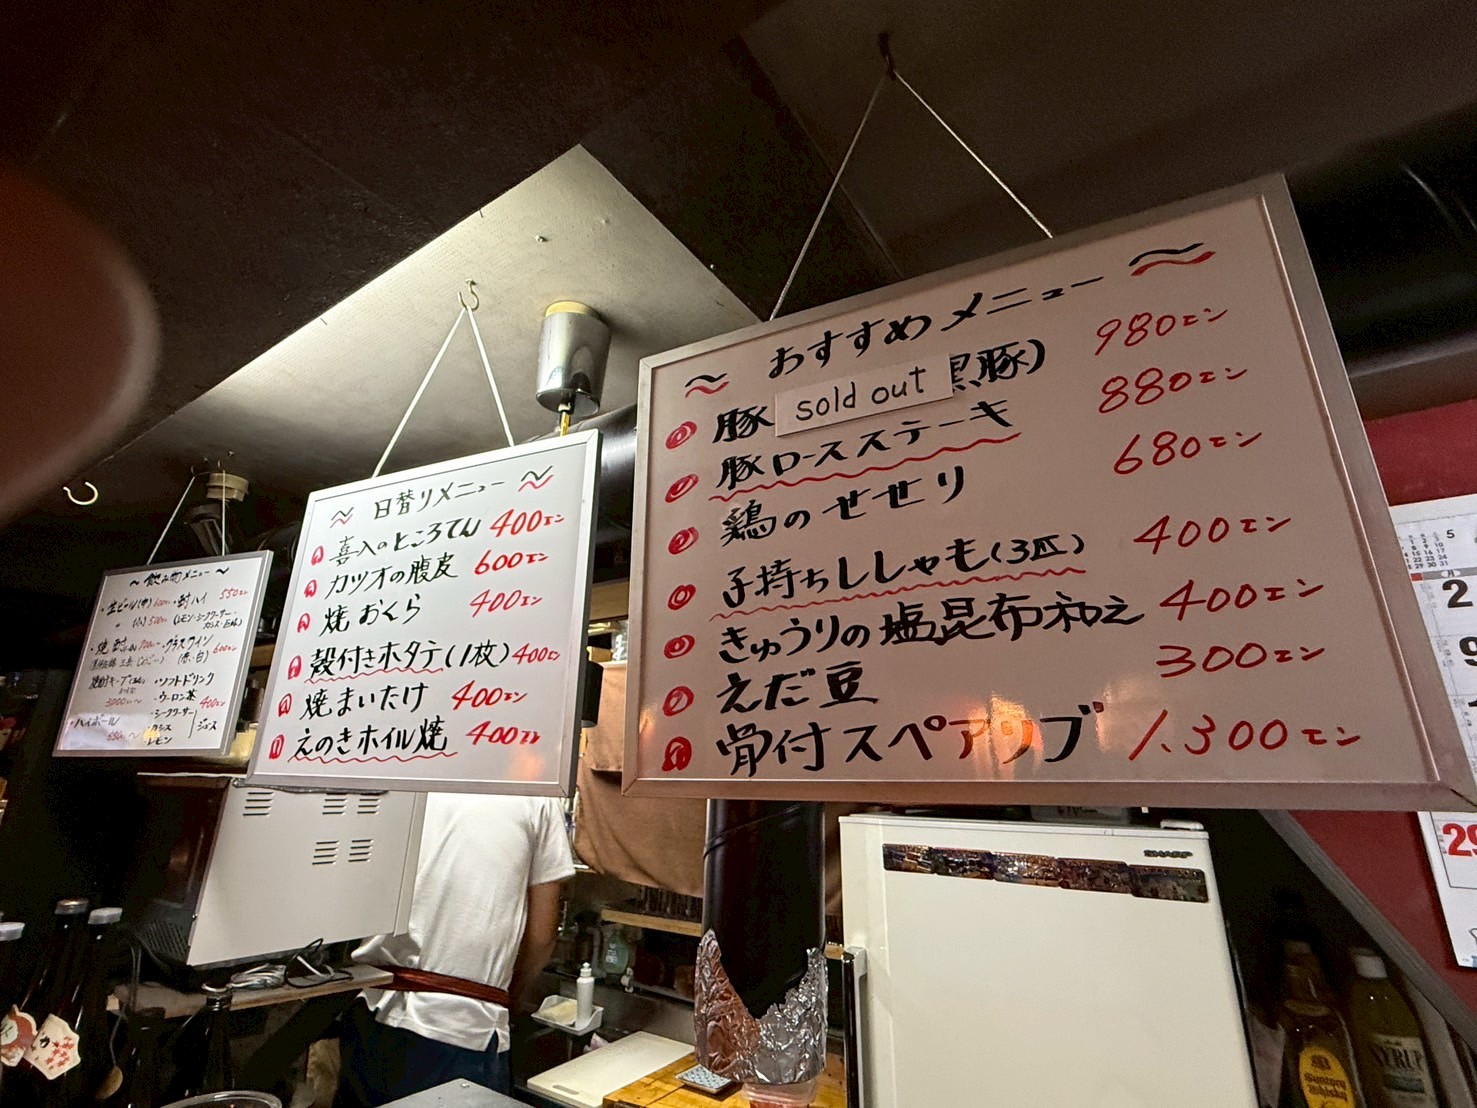 ~ 飲み物メニュー ~
・生ビール(中)
・酎ハイ 550エン
(レモン・シークワーサー・
・グラスワイン
(赤・白) 600エン
・ソフトドリンク
・ウーロン茶
・シークワーサー
400エン
ジュース
・ハイボール
レモン
~ 日替りメニュー ~
喜入のところてん 400エン
カツオの腹皮 600エン
焼おくら 400エン
殻付きホタテ(1枚) 400エン
焼まいたけ 400エン
えのきホイル焼 400エン
~ おすすめメニュー ~
豚 sold out 黒豚) 980エン
豚ロースステーキ 880エン
鶏のせせり 680エン
子持ちししゃも(3匹) 400エン
きゅうりの塩昆布和え 400エン
えだ豆 300エン
骨付スペアリブ 1,300エン
SHARP
29
Suntory
Whisky
SYRUP